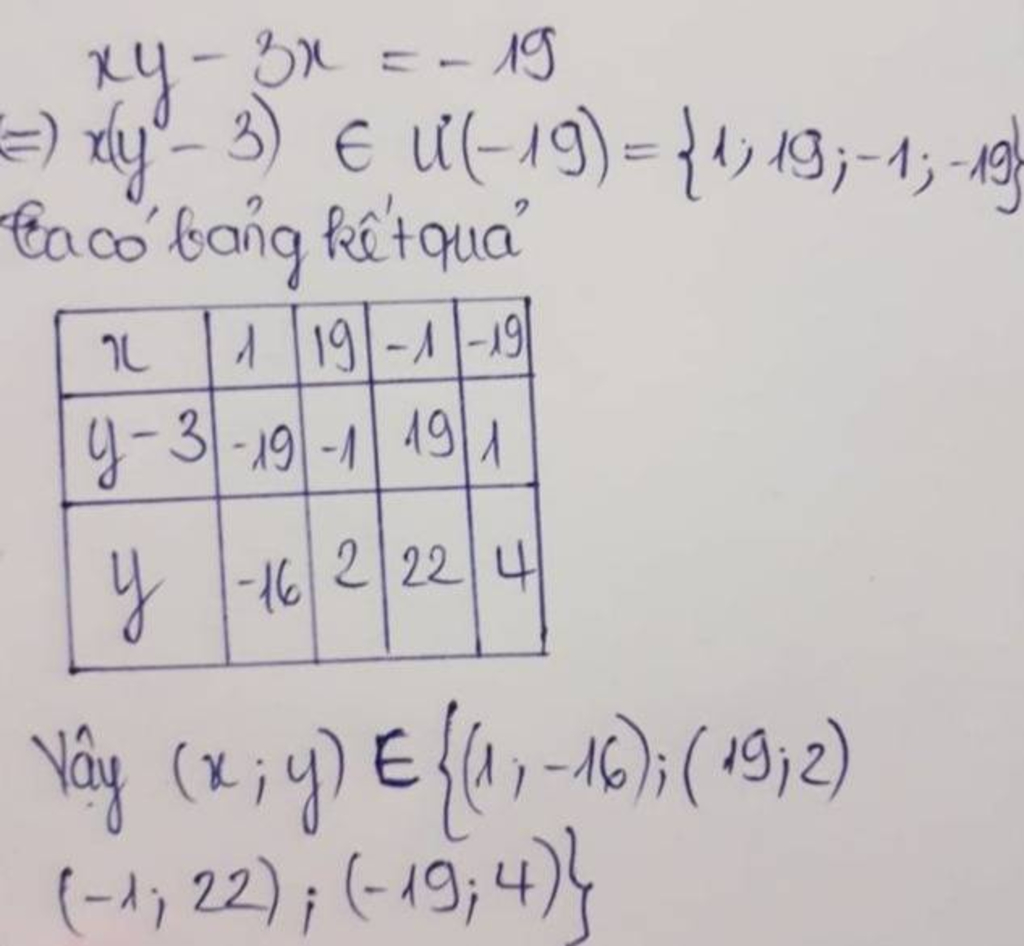 xy - 3x = - 19
(=) x(y - 3) ∈ Ư(-19) = {1; 19; -1; -19}
Ta có bảng kết quả
x 1 19 -1 -19
y - 3 -19 -1 19 1
y -16 2 22 4
Vậy (x; y) ∈ {(1; -16); (19; 2)
(-1; 22); (-19; 4)}